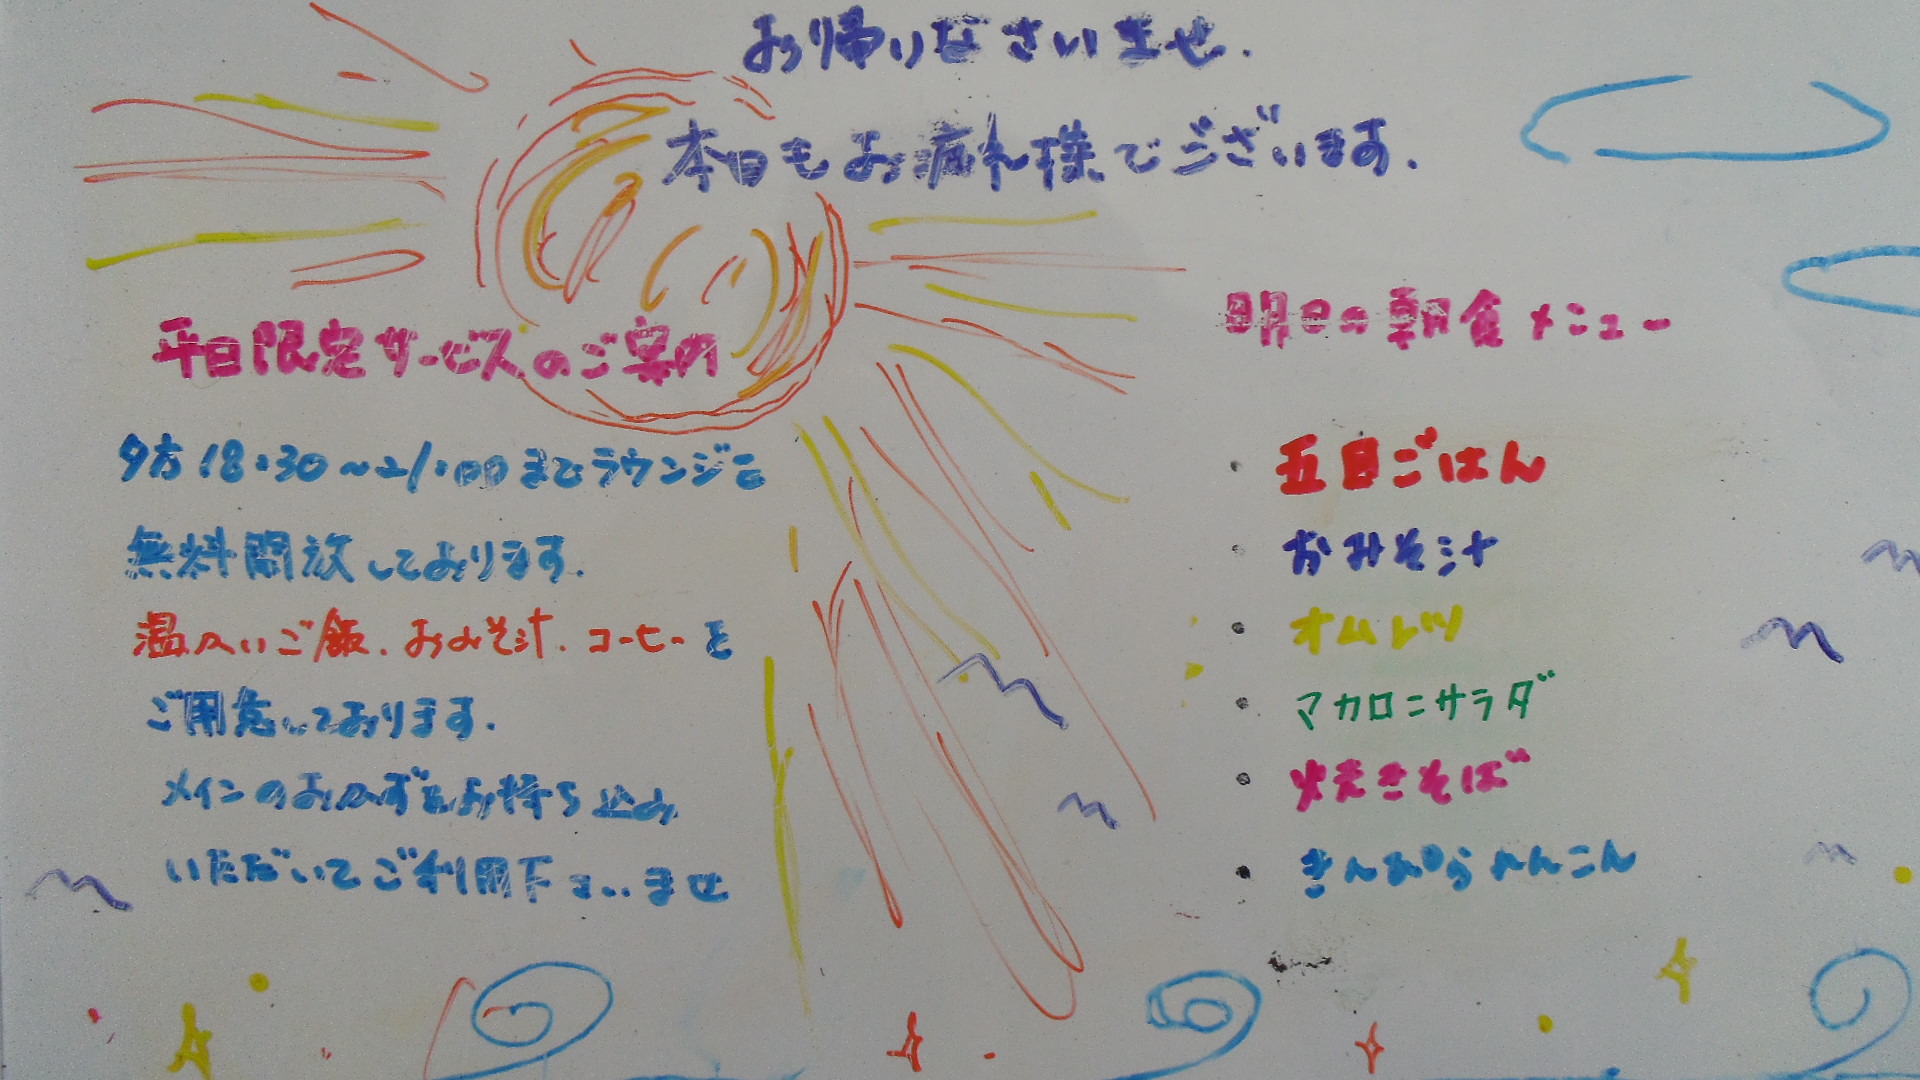 お帰りなさいませ.
本日もお疲れ様でございます.
平日限定サービスのご案内
夕方18:30~21:00までラウンジを
無料開放しております.
温かいご飯.おみそ汁.コーヒーを
ご用意しております.
メインのおかずをお持ち込み
いただいてご利用下さいませ
明日の朝食メニュー
・五目ごはん
・おみそ汁
・オムレツ
・マカロニサラダ
・焼きそば
・きんぴられんこん